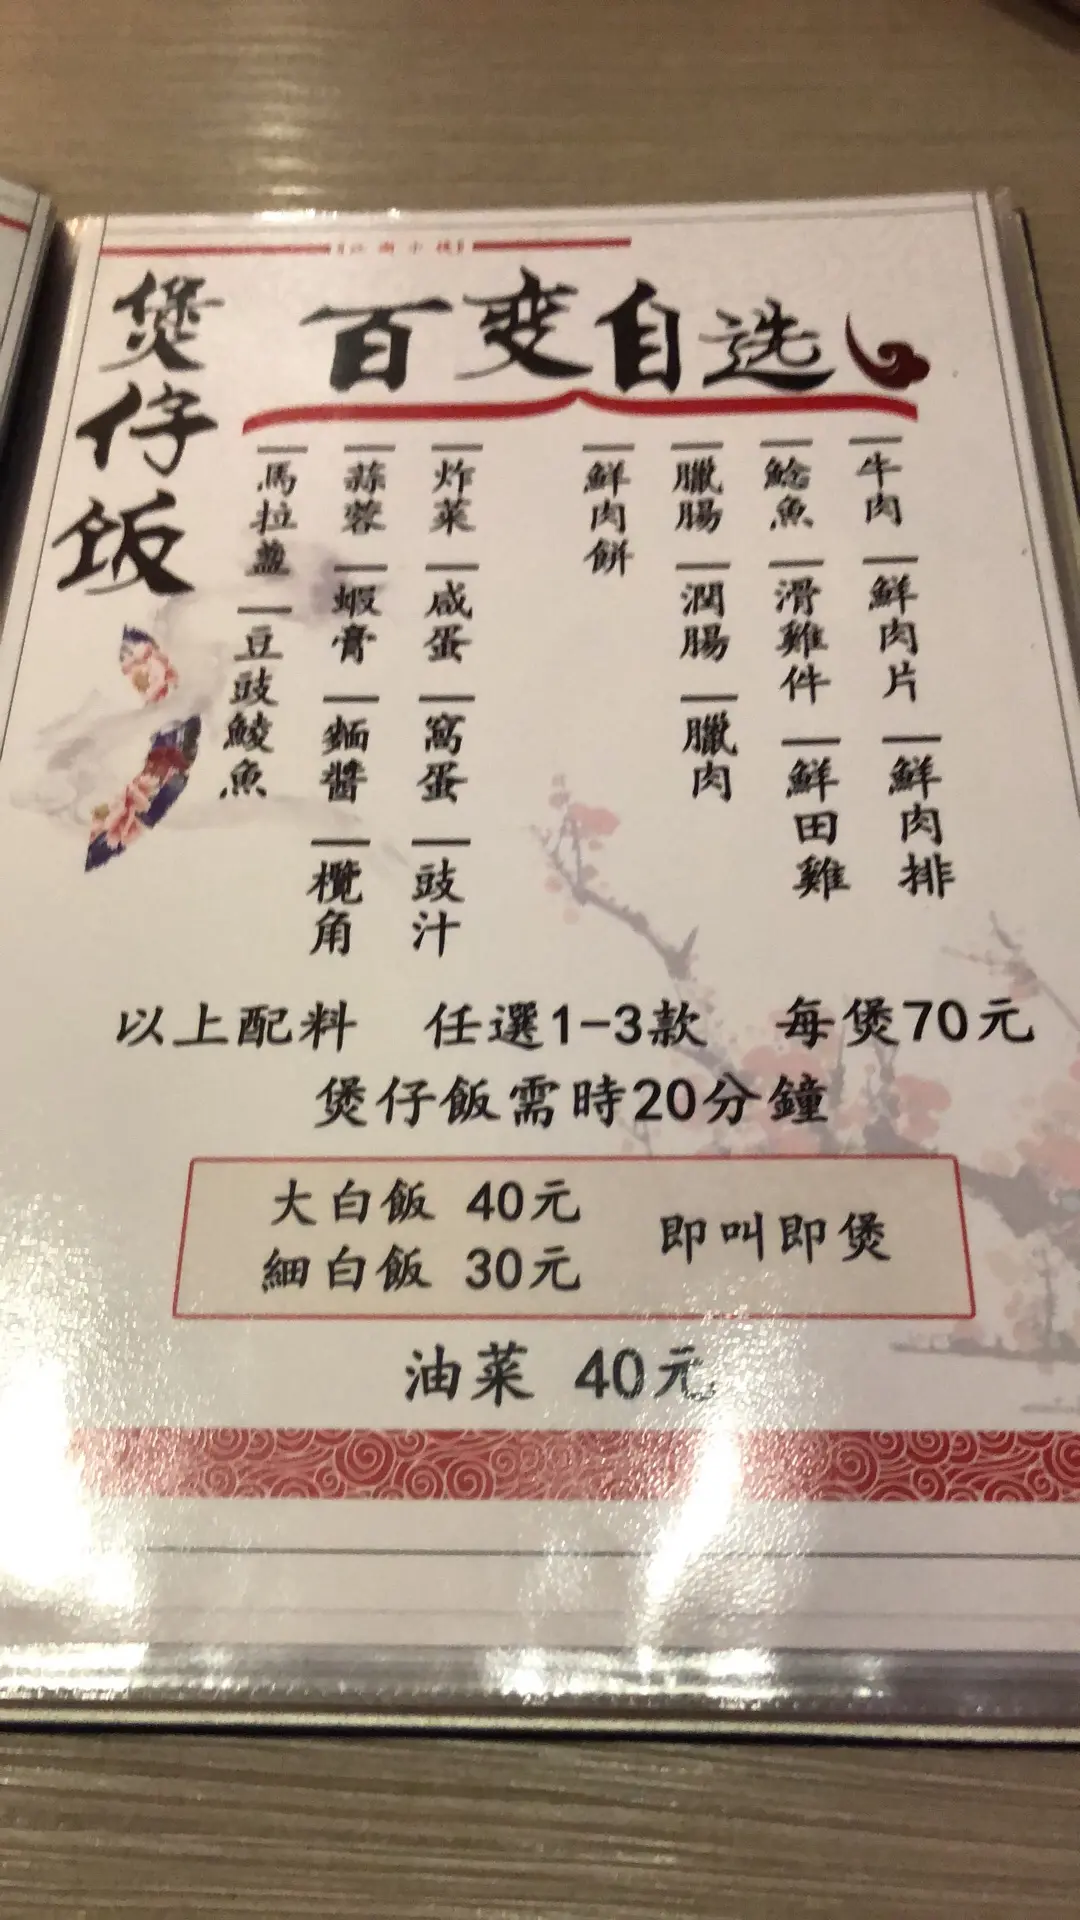 煲仔饭
百变自选
牛肉 鮮肉片 鮮肉排
鯰魚 滑雞件 鮮田雞
臘腸 潤腸 臘肉
鮮肉餅
炸菜 咸蛋 窩蛋 豉汁
蒜蓉 蝦膏 麵醬 欖角
馬拉盞 豆豉鯪魚
以上配料 任選1-3款 每煲70元
煲仔飯需時20分鐘
大白飯 40元
細白飯 30元
即叫即煲
油菜 40元